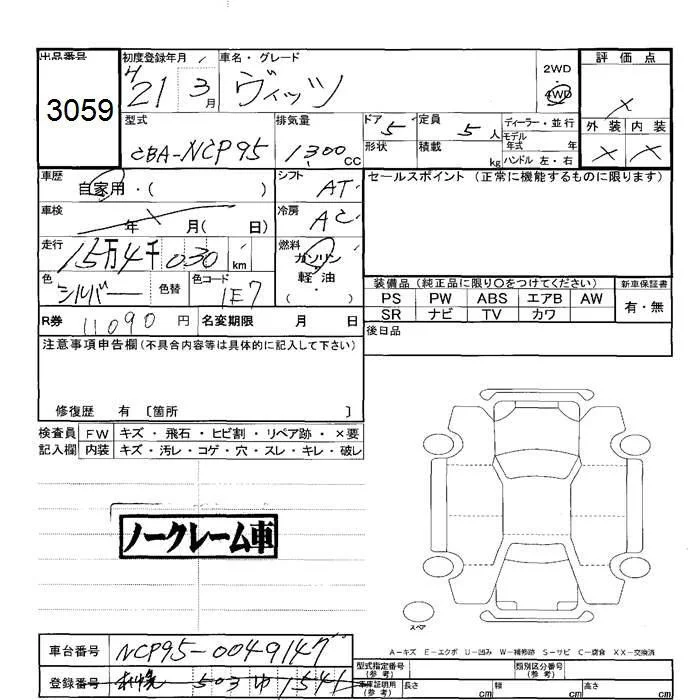 出品番号 初度登録年月 車名・グレード 2WD 4WD 評価点
3059 H21 3月 ヴィッツ X
外装 内装
X X
型式 排気量 ドア 5 定員 5人 ディーラー・並行
CBA-NCP95 1300CC 形状 積載 kg モデル年式 年
ハンドル 左・右
車歴 自家用・( ) シフト AT セールスポイント (正常に機能するものに限ります)
車検 年 月( 日) 冷房 AC
走行 15万4千030km 燃料 ガソリン 軽・油 ( )
色 シルバー 色替 色コード 1E7 装備品 (純正品に限り〇をつけてください) 新車保証書
PS PW ABS エアB AW 有・無
SR ナビ TV カワ
R券 11090円 名変期限 月 日 後日品
注意事項申告欄 (不具合内容等は具体的に記入して下さい)
修復歴 有 〔箇所 〕
検査員 FW キズ・飛石・ヒビ割・リペア跡・×要
記入欄 内装 キズ・汚レ・コゲ・穴・スレ・キレ・破レ
ノークレーム車
スペア
A-キズ E-エクボ U-凹み W-補修跡 S-サビ C-腐食 XX-交換済
車台番号 NCP95-0049147 型式指定番号 (参考) 類別区分番号 (参考)
登録番号 札幌 503 ゆ 1541 車庫証明用 (参考) 長さ cm 幅 cm 高さ cm